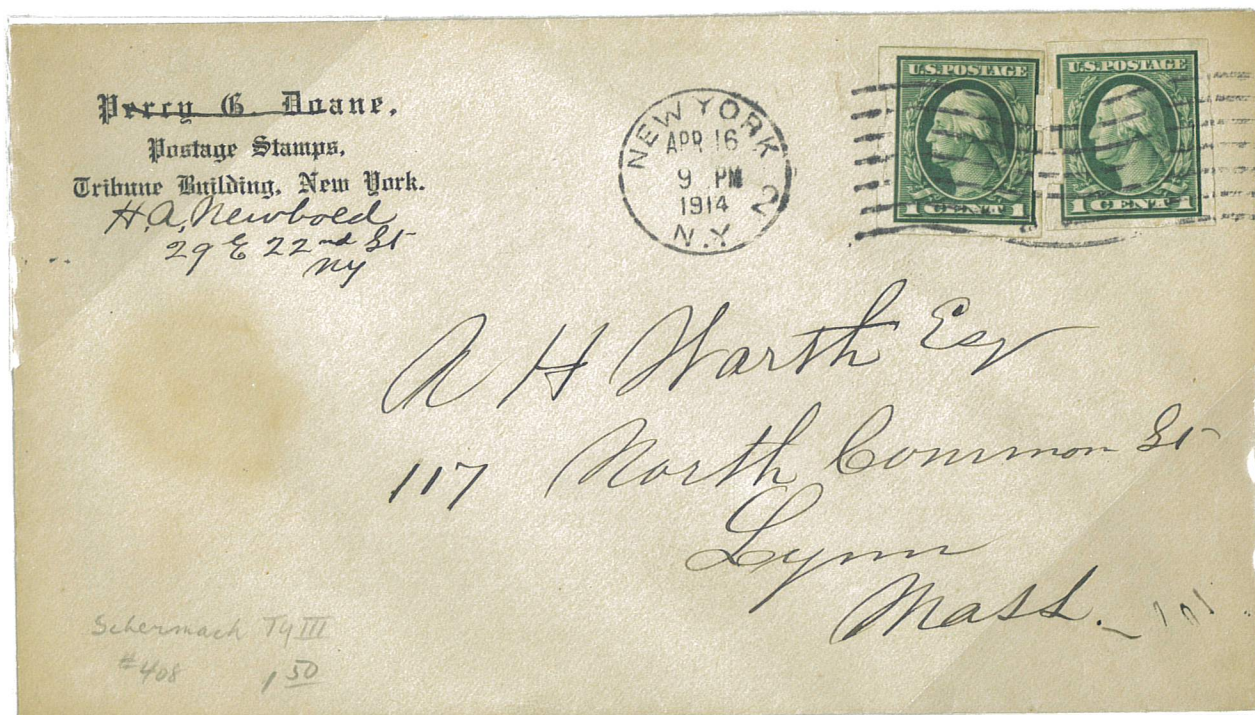 Percy G. Doane,
Postage Stamps,
Tribune Building, New York.
H. A. Newbold
29 E 22nd St
NY
NEW YORK
APR 16
9 PM
1914
2
N.Y.
U.S. POSTAGE
1 CENT 1
U.S. POSTAGE
1 CENT 1
A H Warth Esq
117 North Common St
Lynn
Mass.
Schermack Ty III
#408 1 50